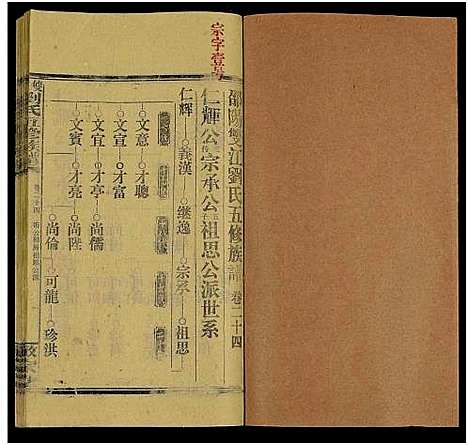 宗字壹號
邵陽雙江劉氏五修族譜 卷二十四
仁輝公宗承公祖思公派世系
仁輝 義漢 継逸 宗承 祖思
文意 才聰
文宜 才富
文宣 才亨 尚儒
文賓 才亮 尚陞
尚倫 可龍 珍洪
劉氏五修族譜 卷二十四